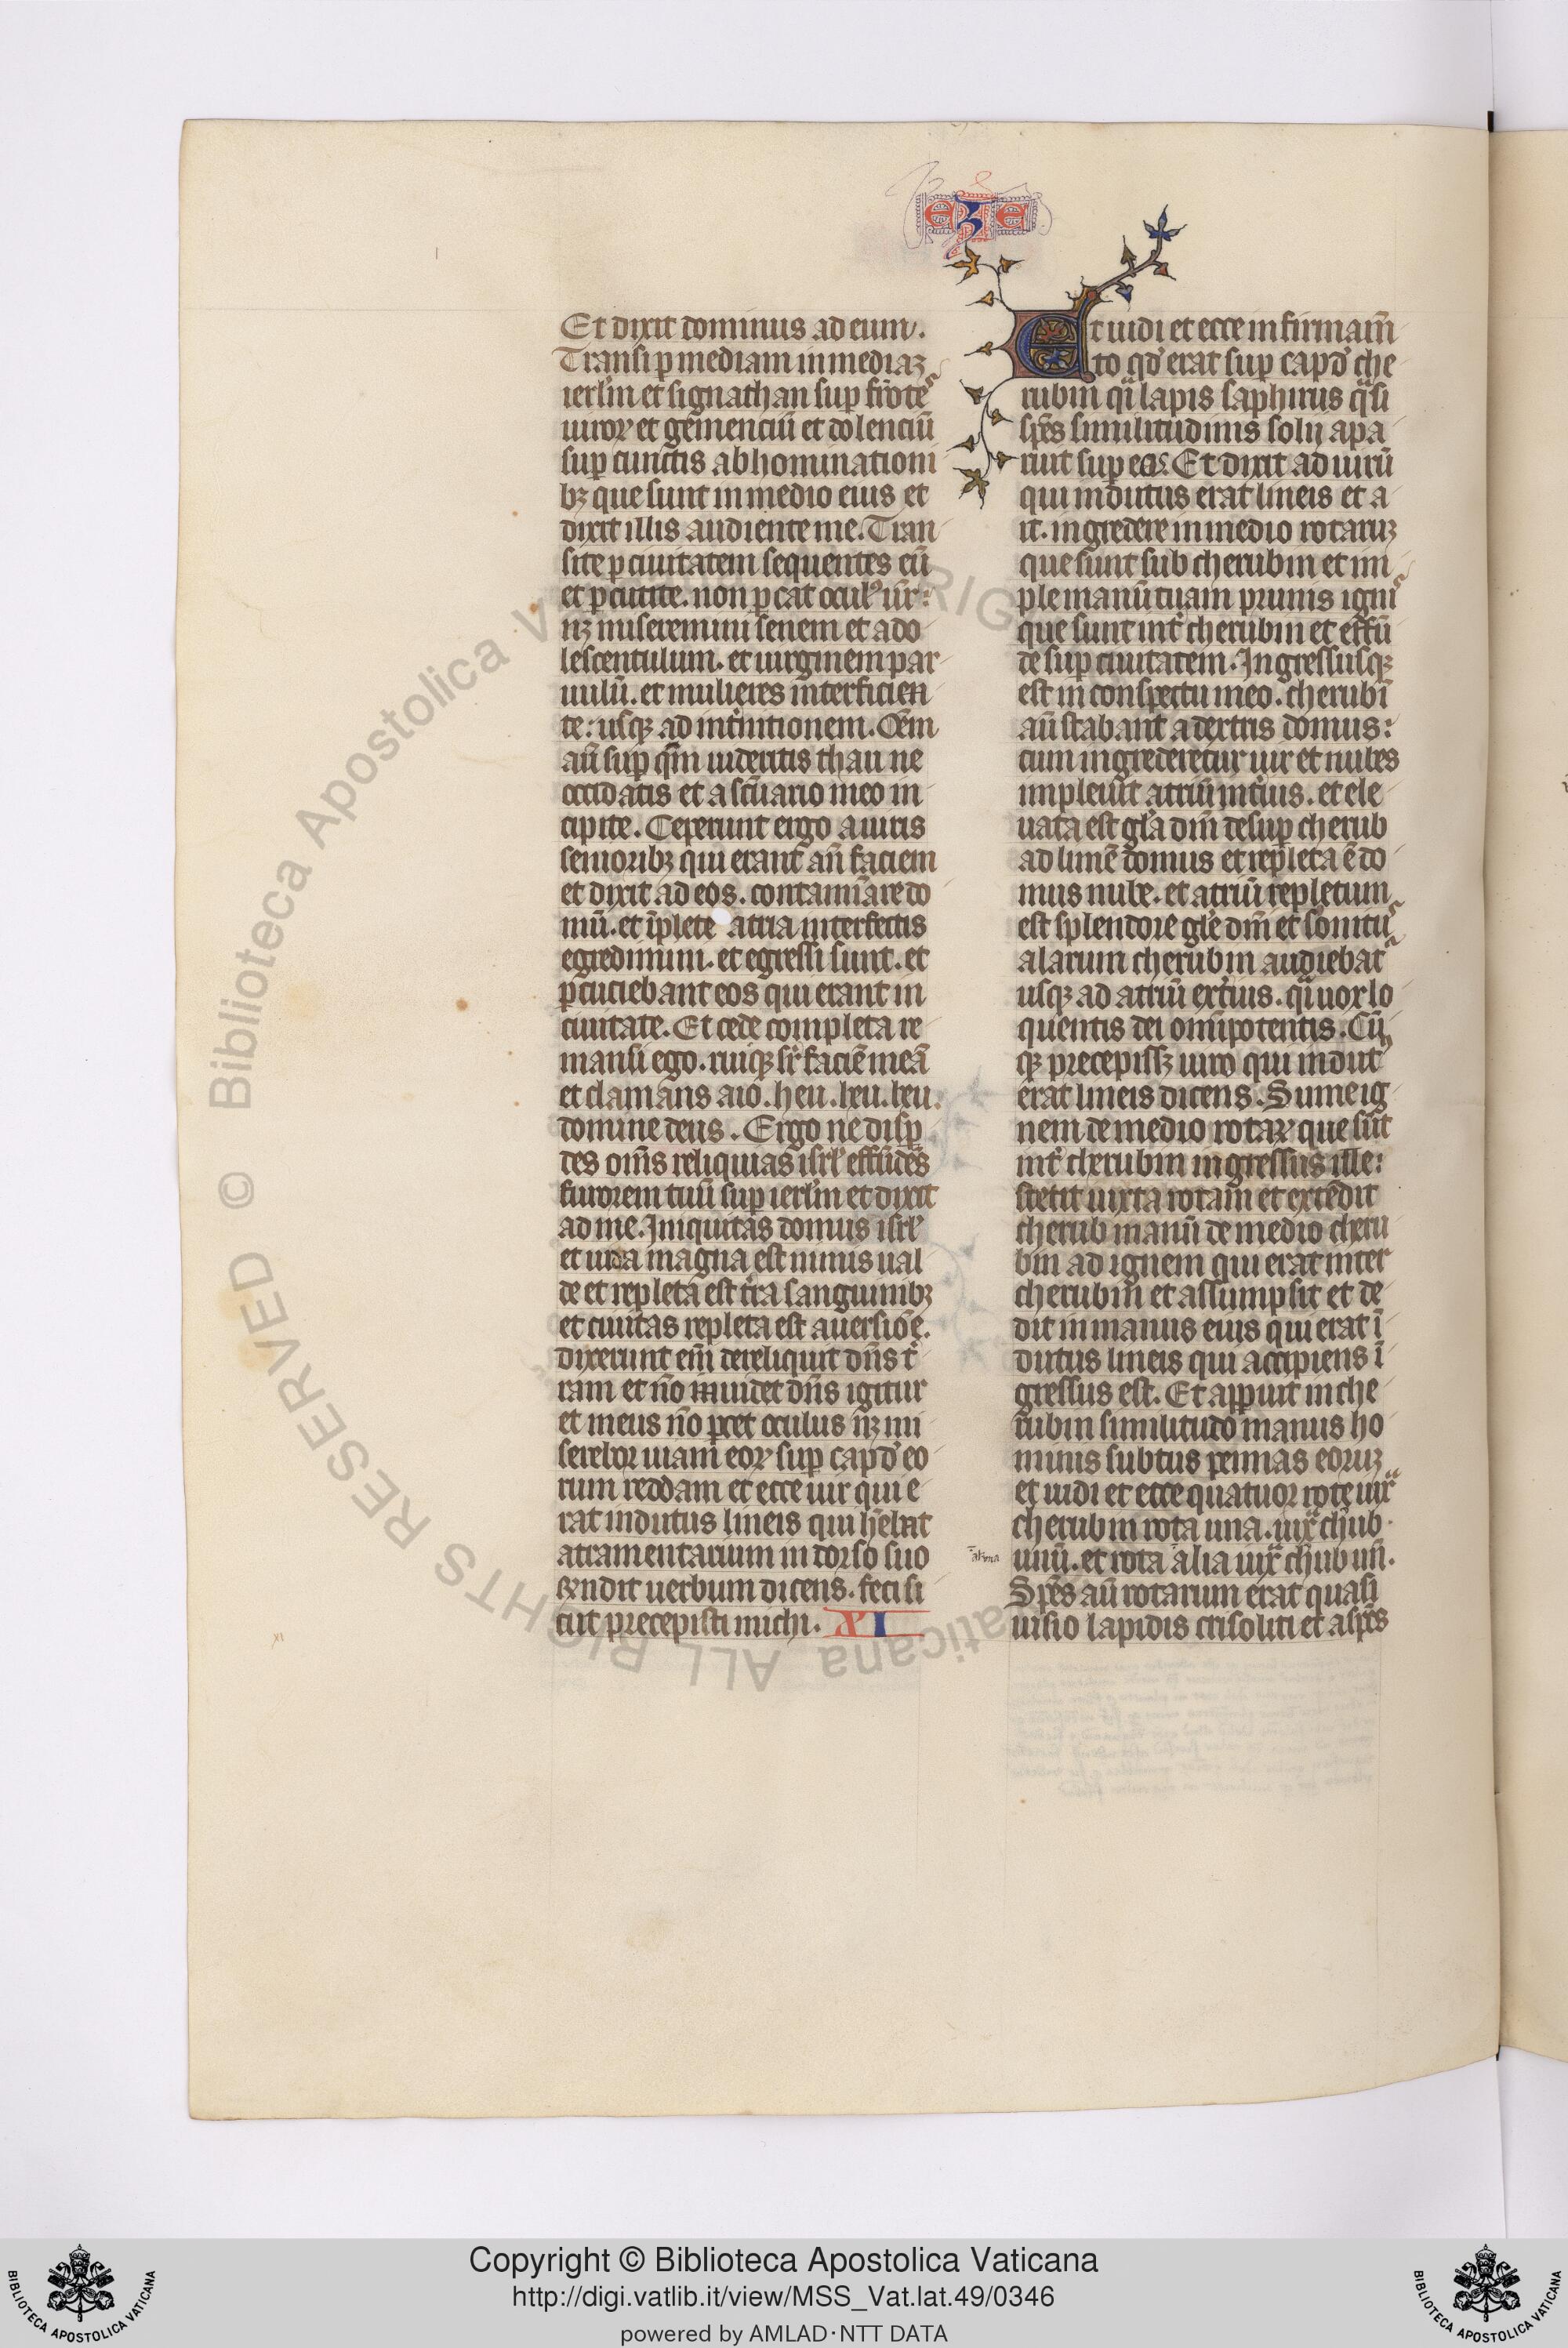 eze
Et dixit dominus ad eum.
Transi ꝑ mediam in mediaꝫ
ierl̅m et signa than suꝑ fro̅te̅
uiroꝝ et gemenciu̅ et dolenciu̅
suꝑ cunctis abhominationi
bꝫ que sunt in medio eius et
dixit illis audiente me. Tran
site ꝑ ciuitatem sequentes eu̅
et ꝑcutite. non ꝑcat ocul᷒ ur̅:
nꝫ miseremini senem et ado
lescentulum. et uirginem par
uulu̅. et mulieres interficien
te: usqꝫ ad int̉nitionem. Oe̅m
au̅ suꝑ qm̅ uideritis thau ne
occidatis et a scu̅ario meo in
cipite. Ceperunt ergo a uiris
senioribꝫ qui erant an̅ faciem
et dixit ad eos. contamin̅are do
mu̅. et i̅plete atria interfectis
egredimini. et egressi sunt. et
ꝑcuciebant eos qui erant in
ciuitate. Et cede completa re
mansi ego. ruiqꝫ sr̅ facie̅ mea̅
et clamans aio. heu. heu. heu.
domine deus. Ergo ne disꝑ
des om̅s reliquias isrl̅ effu̅de̅s
furorem tuu̅ suꝑ ierl̅m et dixit
ad me. Iniquitas domus isrl̅
et iuda magna est nimis ual
de et repleta est t̉ra sanguinibꝫ
et ciuitas repleta est auersio̅e.
dixerunt eni̅ dereliquit dn̅s t̉
ram et no̅ uidet dn̅s igitur
et meus no̅ ꝑcet oculus nꝫ mi
serebor uiam eoꝝ suꝑ capd̉ eo
rum reddam et ecce uir qui e
rat indutus lineis qui he̅bat
atramentarium in dorso suo
rn̅dit uerbum dicens. feci si
cut precepisti michi. XI
Et uidi et ecce in firmam̅
to qd̉ erat suꝑ capd̉ che
rubin qͣi lapis saphirus qͣsi
spe̅s similitudinis solij apa
ruit suꝑ ea. Et dixit ad uiru̅
qui indutus erat lineis et a
it. ingredere in medio rotaruꝫ
que sunt sub cherubin et im
ple manu̅ tuam prunis igni᷒
que sunt int̉ cherubin et effu̅
de suꝑ ciuitatem. Ingressusqꝫ
est in conspectu meo. cherubi̅
au̅ stabant a dextris domus:
cum ingrederetur uir et nubes
impleuit atriu̅ int̉ius. et ele
uata est gl̅a dm̅ desuꝑ cherub
ad lime̅ domus et repleta e̅ do
mus nube. et atriu̅ repletum
est splendore gl̅e dm̅ et sonitu᷒
alarum cherubin audiebat᷒
usqꝫ ad atriu̅ ext̉ius. qͣi uox lo
quentis dei om̅ipotentis. Cu̅
qꝫ precepissꝫ uiro qui indut᷒
erat lineis dicens. Sume ig
nem de medio rotaꝝ que su̅t
int̉ cherubin ingressus ille:
stetit iuxta rotam et exte̅dit
cherub manu̅ de medio cheru
bin ad ignem qui erat inter
cherubin et assumpsit et de
dit in manus eius qui erat i̅
dutus lineis qui accipiens i̅
gressus est. Et apꝑuit in che
rubin similitudo manus ho
minis subtus pennas eoruꝫ
et uidi et ecce quatuor rote iuxͣ
cherubin rota una. iuxͣ ch̅ub
unu̅. et rota alia iuxͣ ch̅ub un̅.
Spe̅s au̅ rotarum erat quasi
uisio lapidis crisoliti et aspe̅s
Copyright © Biblioteca Apostolica Vaticana
http://digi.vatlib.it/view/MSS_Vat.lat.49/0346
powered by AMLAD·NTT DATA
BIBLIOTECA APOSTOLICA VATICANA
BIBLIOTECA APOSTOLICA VATICANA
© Biblioteca Apostolica Vaticana ALL RIGHTS RESERVED